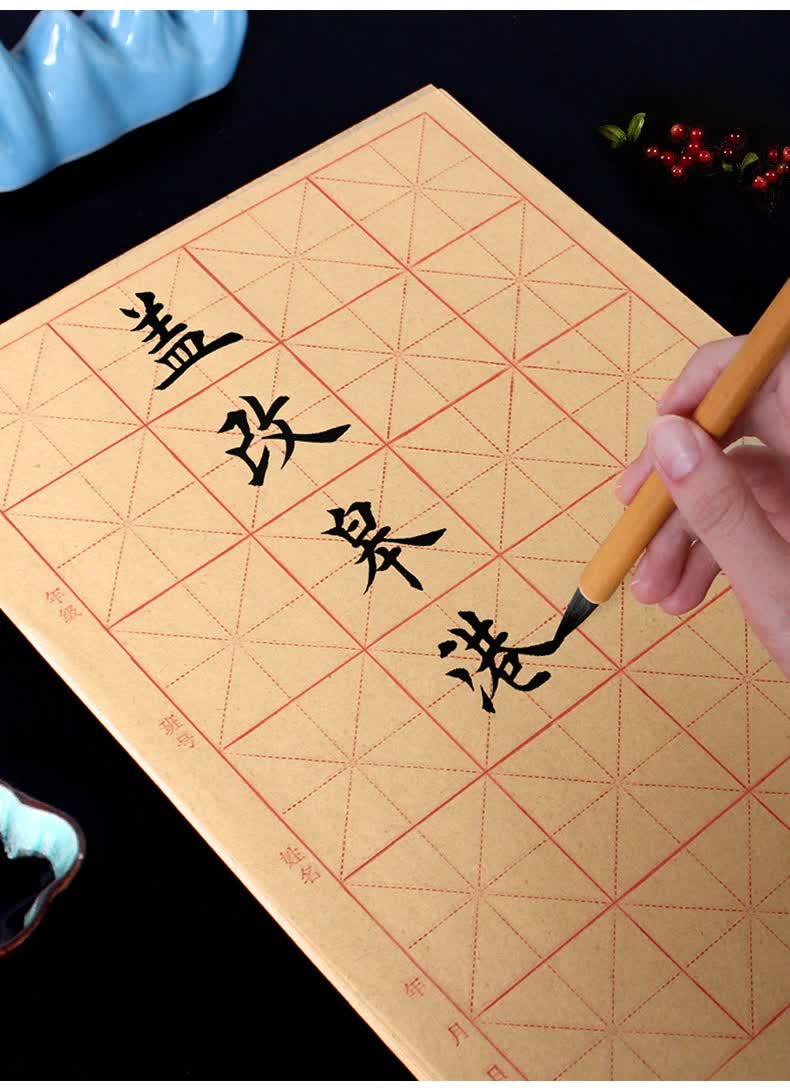 盖
改
皋
港
年级
班号
姓名
年
月
日